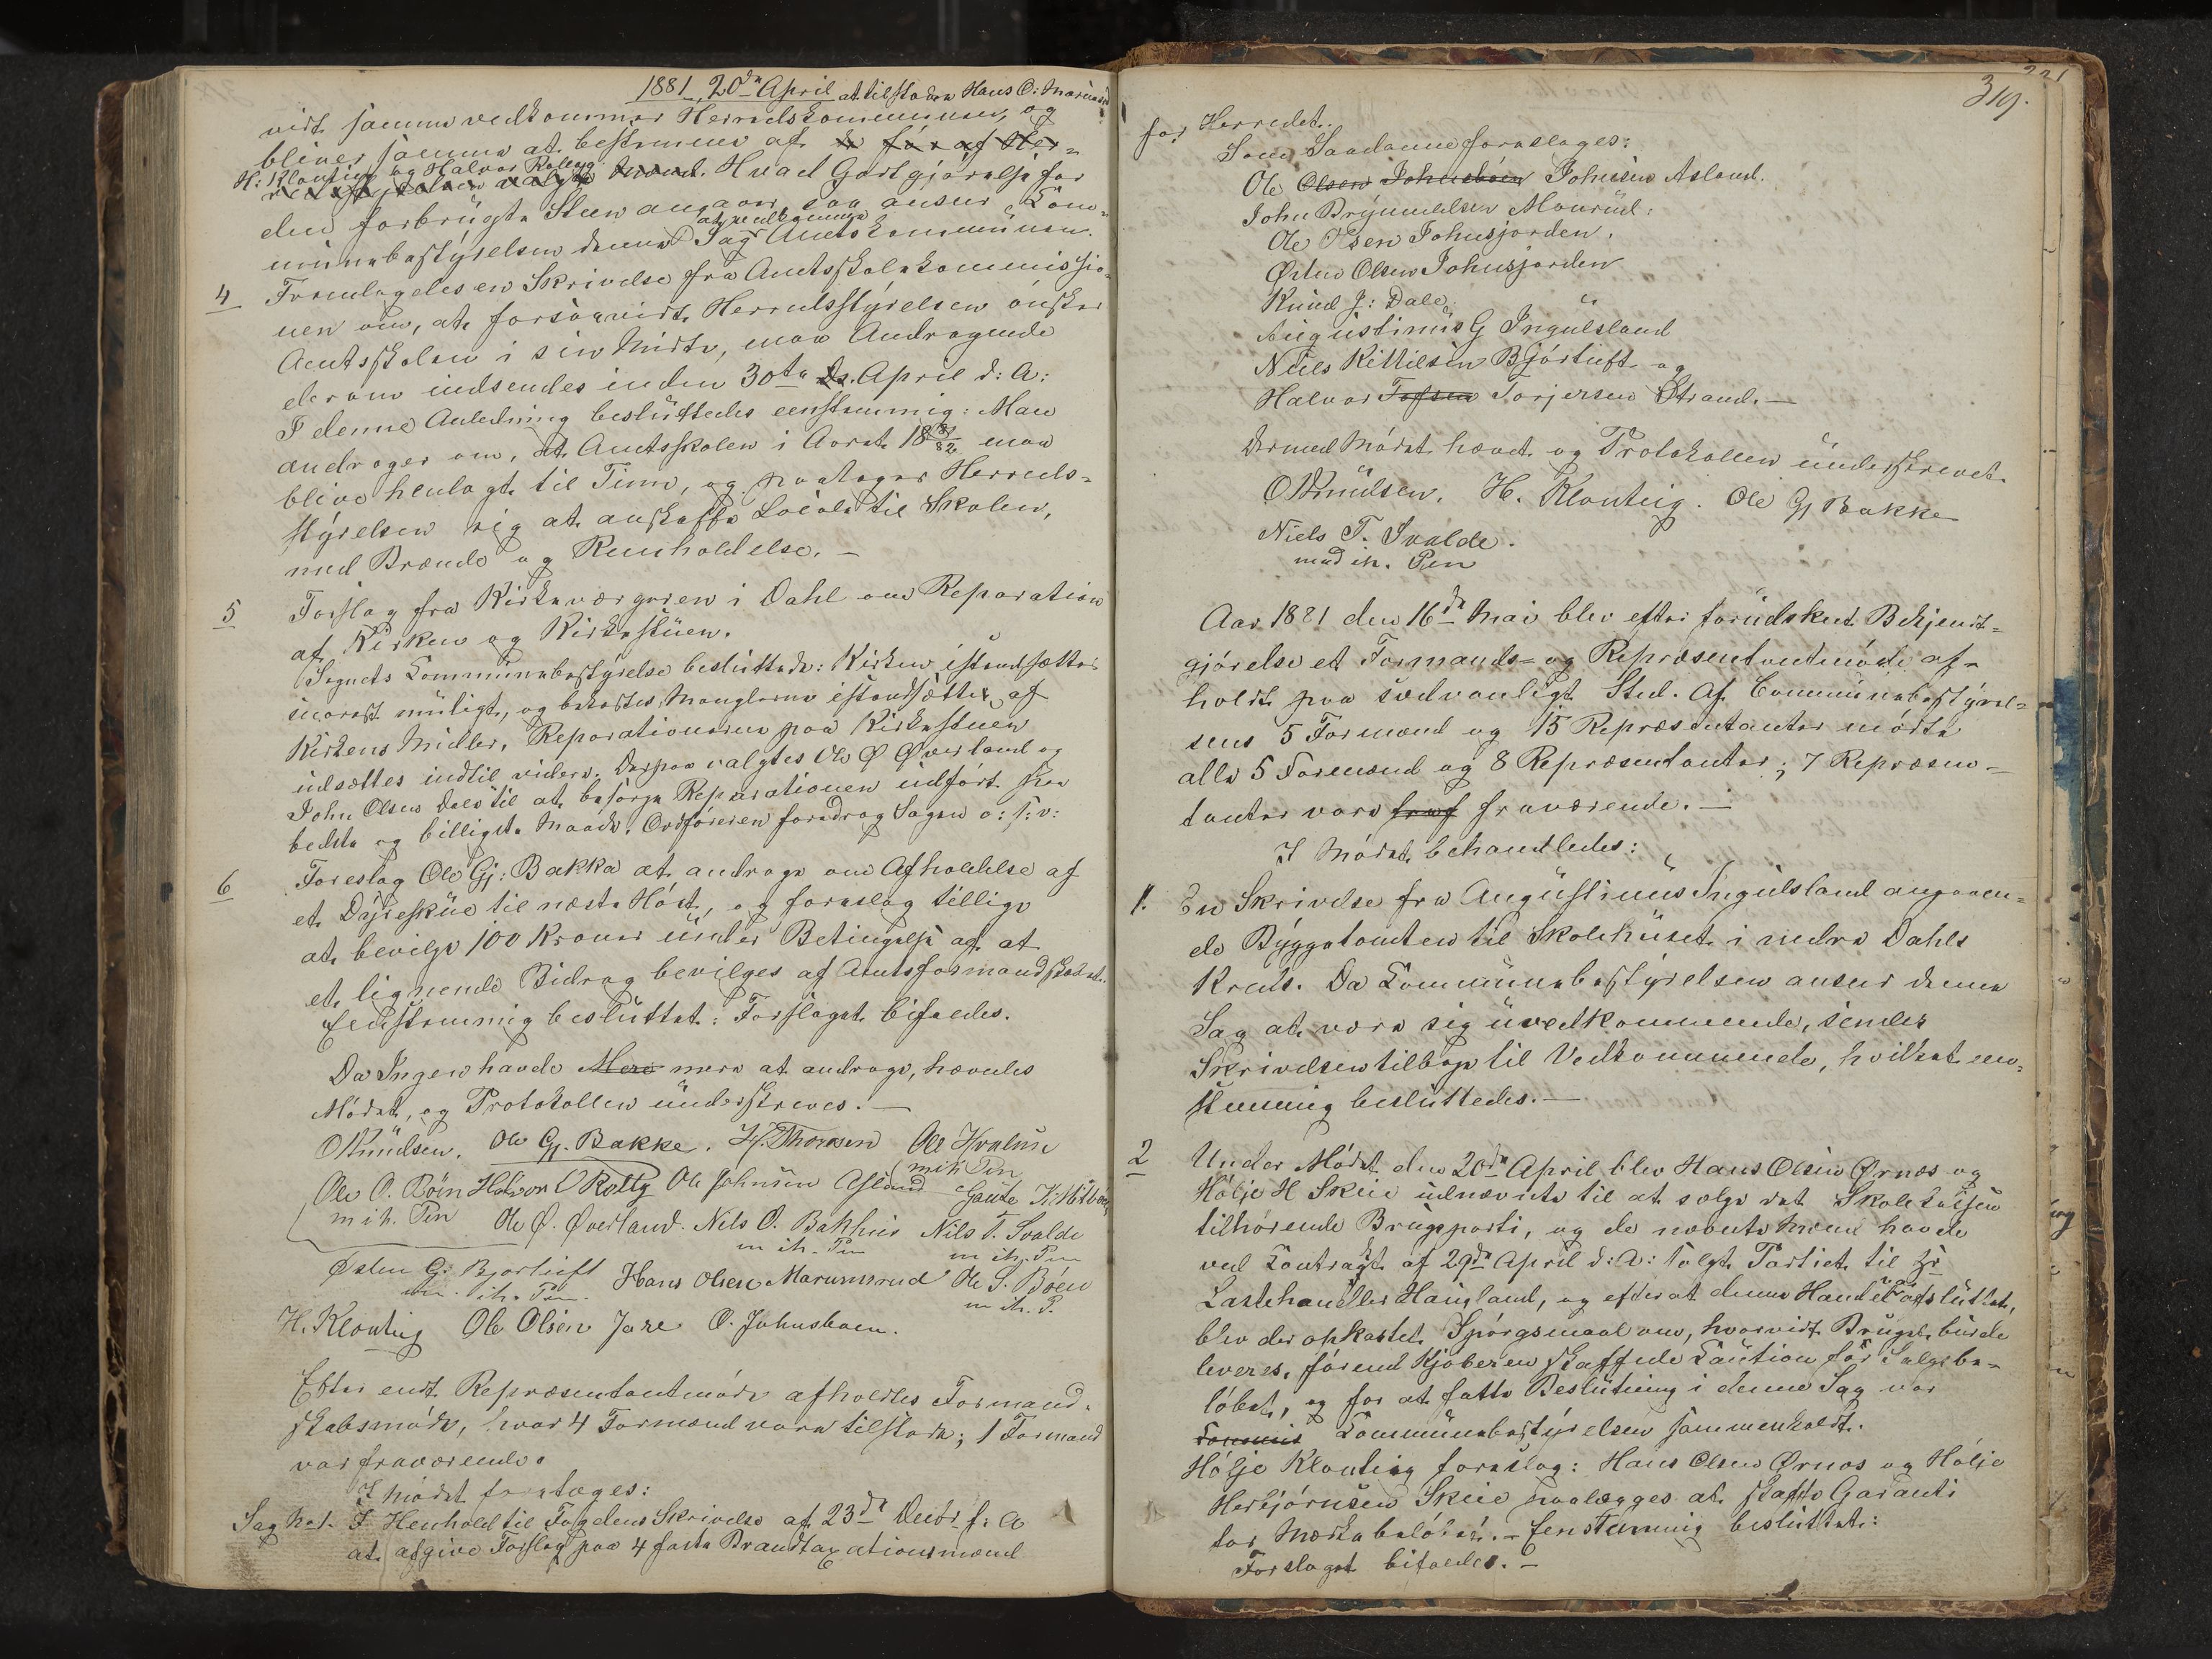 1881, 20de April at tilstadea Hans O: Marums
vidt samme vedkommer Herredskommunen, og
bliver samme at bestemmes af de for af Her-
H: Klonteig og Halvor Rolleg
redsstyrelsen valgte Mænd. Hvad Godtgjørelse for
den forbrugte Steen angaaer, saa anser Kom-
munebestyrelsen denne Sag at vedkomme Amtskommunen.
4 Fremlagdes en Skrivelse fra Amtsskolekommissio-
nen om, at forsaavidt Herredsstyrelsen ønsker
Amtsskolen i sin Midte, maa Andragende
derom indsendes inden 30te ds. April d: A:
I denne Anledning besluttedes eenstemmig: Man
andrager om, at Amtsskolen i Aaret 1881/82 maa
blive henlagt til Tinn, og paatager Herreds-
styrelsen sig at anskaffe Locale til Skolen,
med Brænde og Renholdelse. —
5 Forslag fra Kirkeværgeren i Dahl om Reparation
af Kirken og Kirkestuen.
Sognets Kommunebestyrelse besluttede: Kirken istandsættes
snarest muligt, og bekostes Manglerne istandsættes af
Kirkens Midler, Reparationerne paa Kirkestuen
udsættes indtil videre. Derpaa valgtes Ole Ø Øverland og
John Olsen Dale til at besørge Reparationen udført paa
bedste og billigste Maade. Ordføreren foredrog Sagen o: s: v:
6 Foreslog Ole Gj: Bakka at andrage om Afholdelse af
et Dyreskue til næste Høst, og foreslog tillige
at bevilge 100 Kroner under Betingelse af at
et lignende Bidrag bevilges af Amtsformandskabet.
Eenstemmig besluttet: Forslaget bifaldes.
Da Ingen havde Mere mere at andrage, hævedes
Mødet, og Protokollen underskreves. —
O Knudsen. Ole Gj. Bakke. H. Thorsen Ole Hvalus
m i h Pen
Ole O. Bøen Halvor O Rolleg Ole Johnsen Asland Gaute K:
m i h. Pen Ole Ø. Øverland. Nels O. Bakhus Nils T. Svalde
m ih. Pen m ih. Pen
Østen G: Bjortuft Hans Olsen Marumsrud Ole S. Bøen
m. ih. Pen. m ih. P.
H. Klonteig Ole Olsen Jare O. Johnsbøen.
Efter endt Repræsentantmøde afholdtes Formand-
skabsmøde, hvor 4 Formænd vare tilstede; 1 Formand
var fraværende.
I Mødet foretoges:
Sag No 1. I Henhold til Fogdens Skrivelse af 23de Decbr f: A
at afgive Forslag paa 4 faste Brandtaxationsmænd
319.
for Herredet.
Som Saadanne foreslages:
Ole Olsen Johnsbøen Johnsen Asland.
John Brynnelsen Maurud:
Ole Olsen Johnsjorden.
Østen Olsen Johnsjorden
Knud J: Dale
Augustinus G Ingulsland
Niels Kittilsen Bjørtuft og
Halvor Tofsen Torjersen Strand. —
Dermed Mødet hævet og Protokollen underskrevet.
O Knudsen. H. Klonteig. Ole Gj Bakke
Niels T. Svalde.
med ih. Pen
Aar 1881 den 16de Mai blev efter forudskeet Bekjendt-
gjørelse et Formands- og Repræsentantmøde af-
holdt paa sædvanligt Sted. Af Communebestyrel-
sens 5 Formænd og 15 Repræsentanter mødte
alle 5 Formænd og 8 Repræsentanter; 7 Repræsen-
tanter vare fraf fraværende. —
I Mødet behandledes:
1. En Skrivelse fra Augustinus Ingulsland angaaen-
de Byggetomten til Skolehuset i nedre Dahls
Kreds. Da Kommunebestyrelsen anser denne
Sag at være sig uvedkommende, sendes
Skrivelsen tilbage til Vedkommende, hvilket een-
stemmig besluttedes. —
2 Under Mødet den 20de April blev Hans Olsen Ørnes og
Hølje H Skeie udnævnte til at sælge det Skolekassen
tilhørende Brugsparti, og de nævnte Mænd havde
ved Kontrakt af 29de April d: A: solgt Partiet til Hr
Lastehandler Haugland, og efterat denne Handel var afsluttet,
blev der opkastet Spørgsmaal om, hvorvidt Bruget burde
leveres, førend Kjøberen skaffede Caution for Salgsbe-
løbet, og for at fatte Beslutning i denne Sag var
Kommunebestyrelsen sammenkaldt.
Hølje Klonteig foreslog: Hans Olsen Ørnes og Hølje
Herbjørnsen Skeie paalægges at skaffe Garanti
for Beløbet. — Eenstemmig besluttet:
Forslaget bifaldes. —